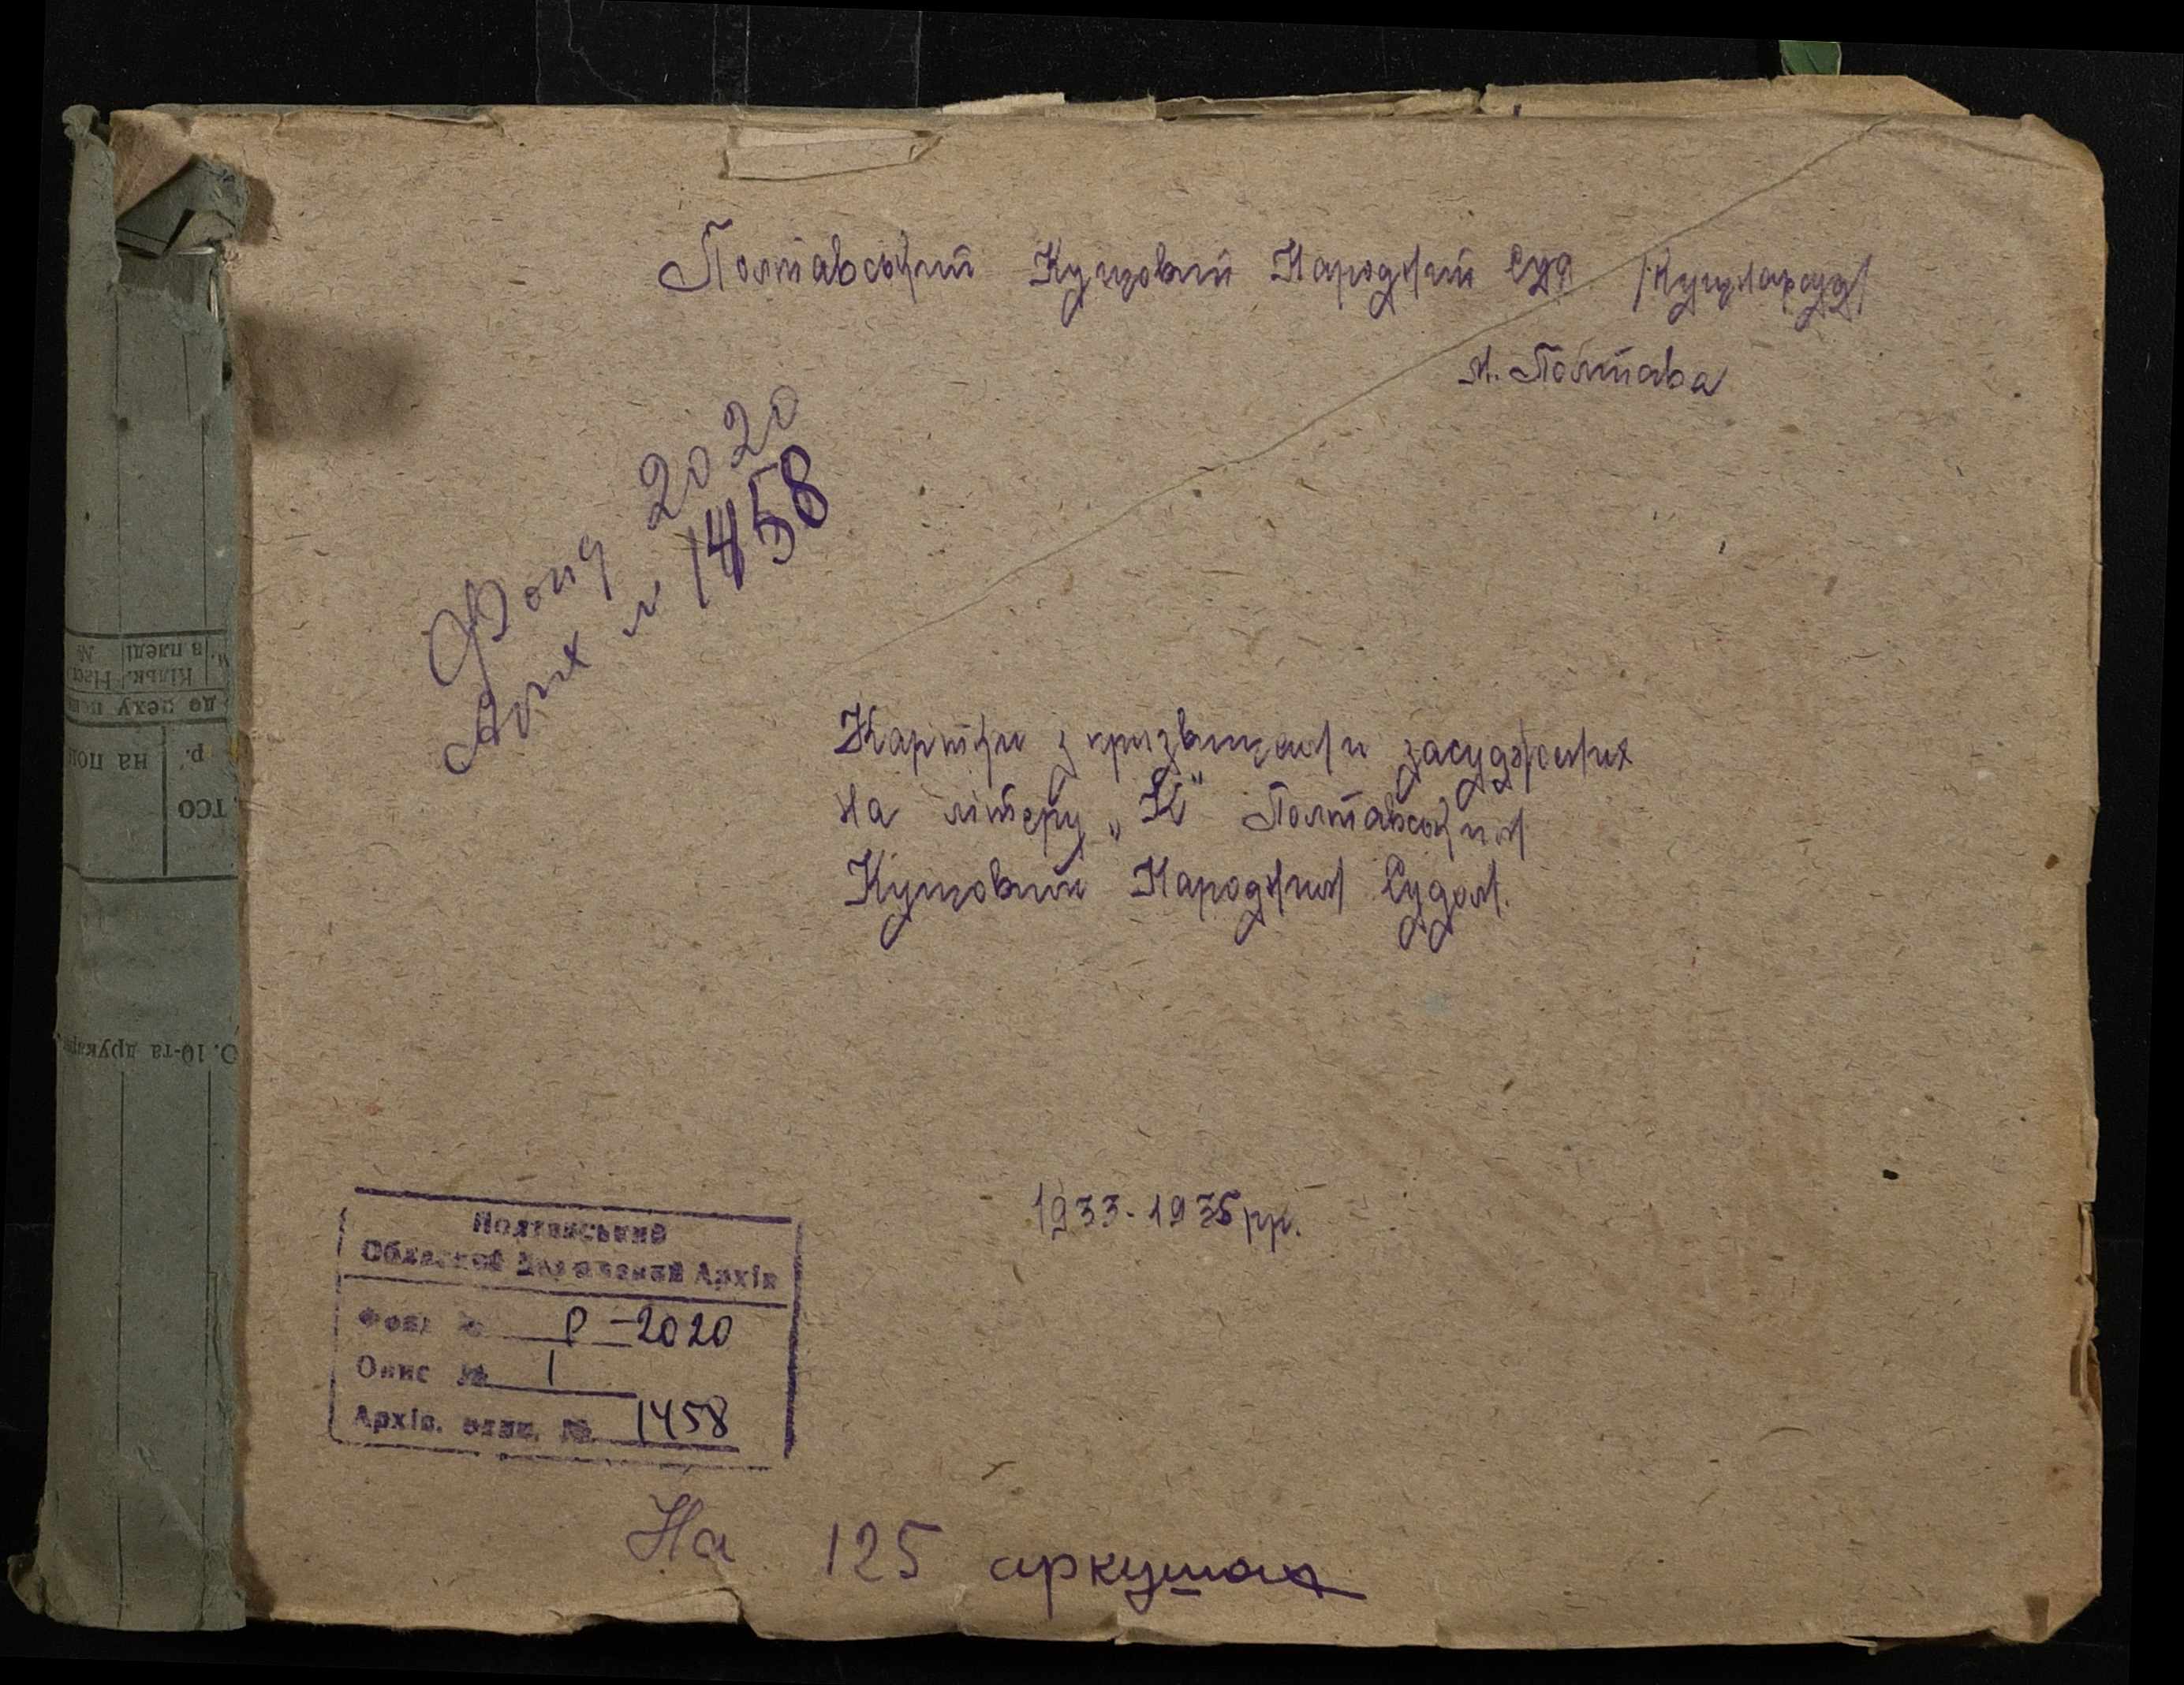 Полтавський Кущовий Народний Суд /Кущнарсуд/
м. Полтава
Фонд 2020
Арх № 1458
Картки з призвищами засуджених
на літеру „К" Полтавським
Кущовим Народним Судом.
1933-1935 рр.
Полтавський
Обласний Державний Архів
Фонд № Р-2020
Опис № 1
Архів. один. № 1458
На 125 аркушах
в пледі №
Кільк.
до цеху
р. на
ТСО
10-та друкарня